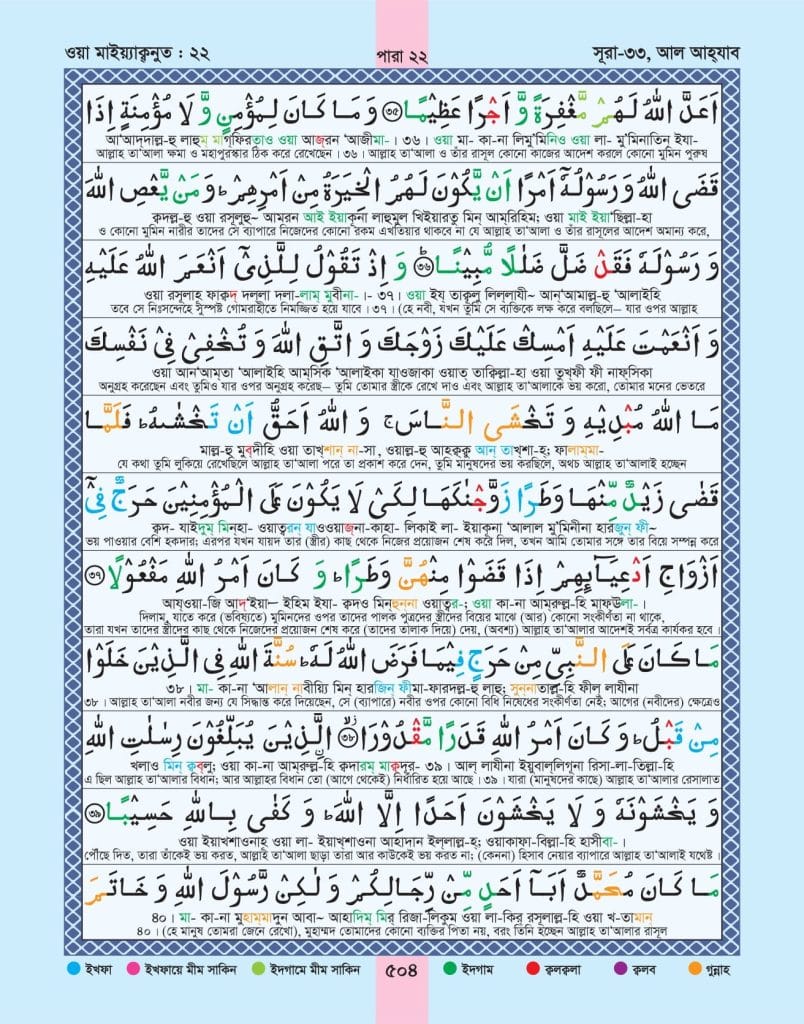 ওয়া মাইয়্যাক্বনুত : ২২
পারা ২২
সূরা-৩৩, আল আহ্‌যাব
اَعَدَّ اللهُ لَهُمْ مَّغْفِرَةً وَّ اَجْرًا عَظِيْمًا ۝৩৫ وَ مَا كَانَ لِمُؤْمِنٍ وَّ لَا مُؤْمِنَةٍ اِذَا
আ‘আদ্দাল্ল-হু লাহুম্ মাগ্‌ফিরতাও ওয়া আজ্‌রন ‘আজীমা-। ৩৬। ওয়া মা- কা-না লিমু’মিনিও ওয়া লা- মু’মিনাতিন ইযা-
আল্লাহ তা‘আলা ক্ষমা ও মহাপুরস্কার ঠিক করে রেখেছেন। ৩৬। আল্লাহ তা‘আলা ও তাঁর রাসূল কোনো কাজের আদেশ করলে কোনো মুমিন পুরুষ
قَضَى اللهُ وَ رَسُوْلُهٗٓ اَمْرًا اَنْ يَّكُوْنَ لَهُمُ الْخِيَرَةُ مِنْ اَمْرِهِمْ ؕ وَ مَنْ يَّعْصِ اللهَ
ক্বদল্ল-হু ওয়া রসূলুহূ~ আমরন আই ইয়াকূনা লাহুমুল খিইয়ারতু মিন্ আমরিহিম; ওয়া মাই ইয়া‘ছিল্লা-হা
ও কোনো মুমিন নারীর তাদের সে ব্যাপারে নিজেদের কোনো রকম এখতিয়ার থাকবে না যে আল্লাহ তা‘আলা ও তাঁর রাসূলের আদেশ অমান্য করে,
وَ رَسُوْلَهٗ فَقَدْ ضَلَّ ضَلٰلًا مُّبِيْنًا ؕ ۝৩৬ وَ اِذْ تَقُوْلُ لِلَّذِيْٓ اَنْعَمَ اللهُ عَلَيْهِ
ওয়া রসূলাহূ ফাক্বদ্ দল্লা দলা-লাম্ মুবীনা-।- ৩৭। ওয়া ইয্ তাক্বূলু লিল্লাযী~ আন্‘আমাল্ল-হু ‘আলাইহি
তবে সে নিঃসন্দেহে সুস্পষ্ট গোমরাহীতে নিমজ্জিত হয়ে যাবে। ৩৭। (হে নবী, যখন তুমি সে ব্যক্তিকে লক্ষ করে বলছিলে– যার ওপর আল্লাহ
وَ اَنْعَمْتَ عَلَيْهِ اَمْسِكْ عَلَيْكَ زَوْجَكَ وَ اتَّقِ اللهَ وَ تُخْفِيْ فِيْ نَفْسِكَ
ওয়া আন‘আম্‌তা ‘আলাইহি আম্‌সিক ‘আলাইকা যাওজাকা ওয়াত্ তাক্বিল্লা-হা ওয়া তুখ্‌ফী ফী নাফ্‌সিকা
অনুগ্রহ করেছেন এবং তুমিও যার ওপর অনুগ্রহ করেছ– তুমি তোমার স্ত্রীকে রেখে দাও এবং আল্লাহ তা‘আলাকে ভয় করো, তোমার মনের ভেতরে
مَا اللهُ مُبْدِيْهِ وَ تَخْشَى النَّاسَ ۚ وَ اللهُ اَحَقُّ اَنْ تَخْشٰىهُ ؕ فَلَمَّا
মাল্ল-হু মুব্‌দীহি ওয়া তাখ্‌শান্ না-সা, ওয়াল্ল-হু আহক্বক্বু আন্ তাখ্‌শা-হ্‌; ফালাম্মা-
যে কথা তুমি লুকিয়ে রেখেছিলে আল্লাহ তা‘আলা পরে তা প্রকাশ করে দেন, তুমি মানুষদের ভয় করছিলে, অথচ আল্লাহ তা‘আলাই হচ্ছেন
قَضٰى زَيْدٌ مِّنْهَا وَطَرًا زَوَّجْنٰكَهَا لِكَيْ لَا يَكُوْنَ عَلَى الْمُؤْمِنِيْنَ حَرَجٌ فِيْٓ
ক্বদ- যাইদুম্ মিন্‌হা- ওয়াত্বরন্ যাওওয়াজ্‌না-কাহা- লিকাই লা- ইয়াকূনা ‘আলাল মু’মিনীনা হারজুন্ ফী~
ভয় পাওয়ার বেশি হকদার; এরপর যখন যায়দ তার (স্ত্রীর) কাছ থেকে নিজের প্রয়োজন শেষ করে দিল, তখন আমি তোমার সঙ্গে তার বিয়ে সম্পন্ন করে
اَزْوَاجِ اَدْعِيَآئِهِمْ اِذَا قَضَوْا مِنْهُنَّ وَطَرًا ؕ وَ كَانَ اَمْرُ اللهِ مَفْعُوْلًا ۝৩৭
আয্‌ওয়া-জি আদ্‘ইয়া— ইহিম ইযা- ক্বদও মিন্‌হুন্না ওয়াত্বর-; ওয়া কা-না আম্‌রুল্ল-হি মাফ্‘ঊলা-।
দিলাম, যাতে করে (ভবিষ্যতে) মুমিনদের ওপর তাদের পালক পুত্রদের স্ত্রীদের বিয়ের মাঝে (আর) কোনো সংকীর্ণতা না থাকে,
তারা যখন তাদের স্ত্রীদের কাছ থেকে নিজেদের প্রয়োজন শেষ করে (তাদের তালাক দিয়ে) দেয়, (অবশ্য) আল্লাহ তা‘আলার আদেশই সর্বত্র কার্যকর হবে।
مَا كَانَ عَلَى النَّبِيِّ مِنْ حَرَجٍ فِيْمَا فَرَضَ اللهُ لَهٗ ؕ سُنَّةَ اللهِ فِي الَّذِيْنَ خَلَوْا
৩৮। মা- কা-না ‘আলান্ নাবীয়্যি মিন্ হারজিন্ ফীমা-ফারদল্ল-হু লাহূ; সুন্নাতাল্ল-হি ফীল লাযীনা
৩৮। আল্লাহ তা‘আলা নবীর জন্য যে সিদ্ধান্ত করে দিয়েছেন, সে (ব্যাপারে) নবীর ওপর কোনো বিধি নিষেধের সংকীর্ণতা নেই; আগের (নবীদের) ক্ষেত্রেও
مِنْ قَبْلُ ؕ وَ كَانَ اَمْرُ اللهِ قَدَرًا مَّقْدُوْرًا ۝৩৮ الَّذِيْنَ يُبَلِّغُوْنَ رِسٰلٰتِ اللهِ
খলাও মিন্ ক্বব্‌লু; ওয়া কা-না আম্‌রুল্ল-হি ক্বদারম্ মাক্‌দূর- ৩৯। আল্ লাযীনা ইয়ুবাল্লিগূনা রিসা-লা-তিল্লা-হি
এ ছিল আল্লাহ তা‘আলার বিধান; আর আল্লাহর বিধান তো (আগে থেকেই) নির্ধারিত হয়ে আছে। ৩৯। যারা (মানুষদের কাছে) আল্লাহ তা‘আলার রেসালাত
وَ يَخْشَوْنَهٗ وَ لَا يَخْشَوْنَ اَحَدًا اِلَّا اللهَ ؕ وَ كَفٰى بِاللهِ حَسِيْبًا ۝৩৯
ওয়া ইয়াখশাওনাহূ ওয়া লা- ইয়াখ্‌শাওনা আহাদান ইল্লাল্ল-হ্‌; ওয়াকাফা-বিল্লা-হি হাসীবা-।
পৌঁছে দিত, তারা তাঁকেই ভয় করত, আল্লাহ তা‘আলা ছাড়া তারা আর কাউকেই ভয় করত না; (কেননা) হিসাব নেয়ার ব্যাপারে আল্লাহ তা‘আলাই যথেষ্ট।
مَا كَانَ مُحَمَّدٌ اَبَآ اَحَدٍ مِّنْ رِّجَالِكُمْ وَ لٰكِنْ رَّسُوْلَ اللهِ وَ خَاتَمَ
৪০। মা- কা-না মুহাম্মাদুন আবা~ আহাদিম্ মির্ রিজা-লিকুম ওয়া লা-কির্ রসূলাল্ল-হি ওয়া খ-তামান্
৪০। (হে মানুষ তোমরা জেনে রেখো), মুহাম্মদ তোমাদের কোনো ব্যক্তির পিতা নয়, বরং তিনি হচ্ছেন আল্লাহ তা‘আলার রাসূল
ইখফা ইখফায়ে মীম সাকিন ইদগামে মীম সাকিন ৫০৪ ইদগাম ক্বলক্বলা ক্বলব গুন্নাহ